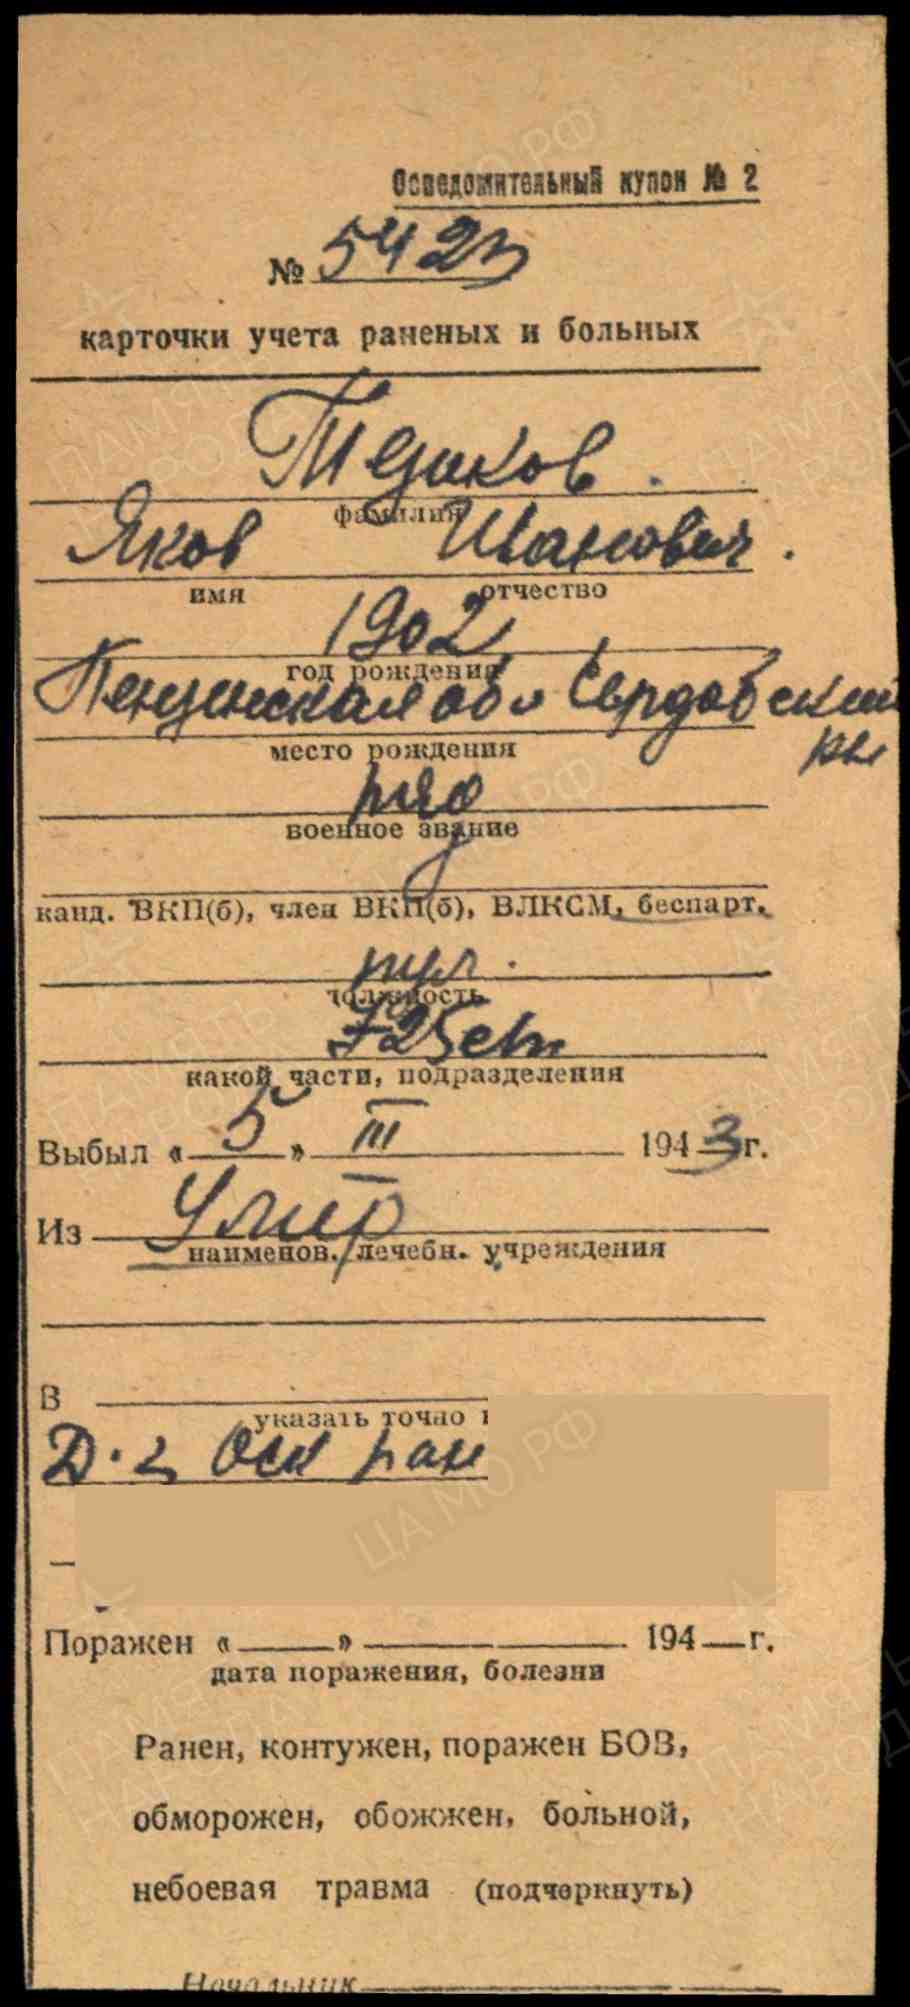 Осведомительный купон № 2
№ 5423
карточки учета раненых и больных
фамилия
Яков Иванович.
имя отчество
1902
год рождения
Пензинская обл Сердобский
место рождения
ряд
военное звание
канд. ВКП(б), член ВКП(б), ВЛКСМ, беспарт.
пул.
должность
725 сп
какой части, подразделения
Выбыл « 5 » III 1943 г.
Из Умер
наименов. лечебн. учреждения
В
указать точно
Д-з Оск ран
Поражен « » 194 г.
дата поражения, болезни
Ранен, контужен, поражен БОВ,
обморожен, обожжен, больной,
небоевая травма (подчеркнуть)
Начальник
ПАМЯТЬ НАРОДА
ЦА МО РФ